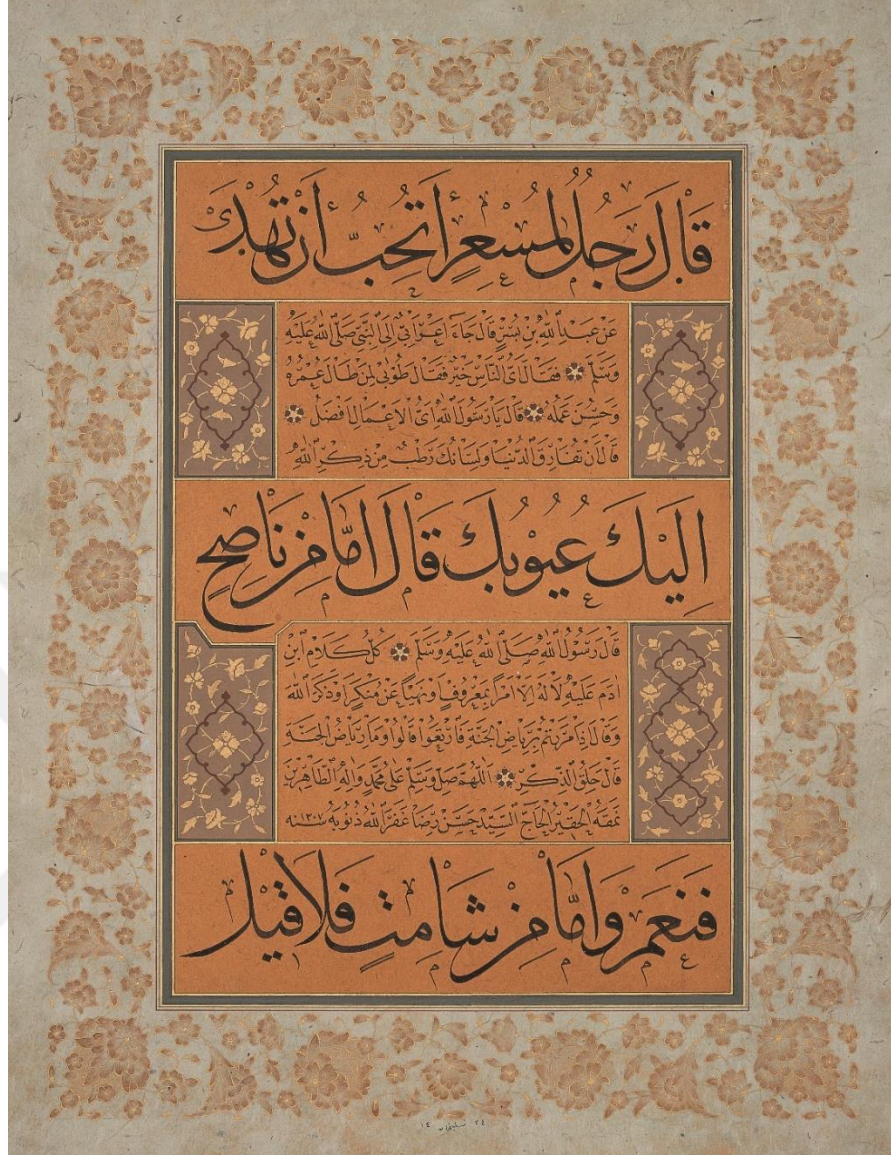 قَالَ رَجُلٌ لِمُسْعِرٍ أَتُحِبُّ أَنْ تُهْدَىٰ
عَنْ عَبْدِ اللّٰهِ بْنِ بُسْرٍ قَالَ جَاءَ اَعْرَابِيٌّ اِلَى النَّبِيِّ صَلَّى اللّٰهُ عَلَيْهِ
وَسَلَّمَ فَقَالَ اَىُّ النَّاسِ خَيْرٌ فَقَالَ طُوبٰى لِمَنْ طَالَ عُمْرُهُ
وَحَسُنَ عَمَلُهُ قَالَ يَا رَسُولَ اللّٰهِ اَىُّ الْاَعْمَالِ اَفْضَلُ
قَالَ اَنْ تُفَارِقَ الدُّنْيَا وَلِسَانُكَ رَطْبٌ مِنْ ذِكْرِ اللّٰهِ
اِلَيْكَ عُيُوبُكَ قَالَ اَمَّا مِنْ نَاصِحٍ
قَالَ رَسُولُ اللّٰهِ صَلَّى اللّٰهُ عَلَيْهِ وَسَلَّمَ كُلُّ كَلَامِ ابْنِ
اٰدَمَ عَلَيْهِ لَا لَهُ اِلَّا اَمْرًا بِمَعْرُوفٍ اَوْ نَهْيًا عَنْ مُنْكَرٍ اَوْ ذِكْرَ اللّٰهِ
وَقَالَ اِذَا مَرَرْتُمْ بِرِيَاضِ الْجَنَّةِ فَارْتَعُوا قَالُوا وَمَا رِيَاضُ الْجَنَّةِ
قَالَ حِلَقُ الذِّكْرِ اَللّٰهُمَّ صَلِّ وَسَلِّمْ عَلٰى مُحَمَّدٍ وَاٰلِهِ الطَّاهِرِينَ
نَمَقَهُ الْحَقِيرُ الْحَاجّ السَّيِّدْ حَسَنْ رِضَا غَفَرَ اللّٰهُ ذُنُوبَهُ سَنَه ١٣٠٧
فَنَعَمْ وَاَمَّا مِنْ شَامِتٍ فَلَا قِيلَ